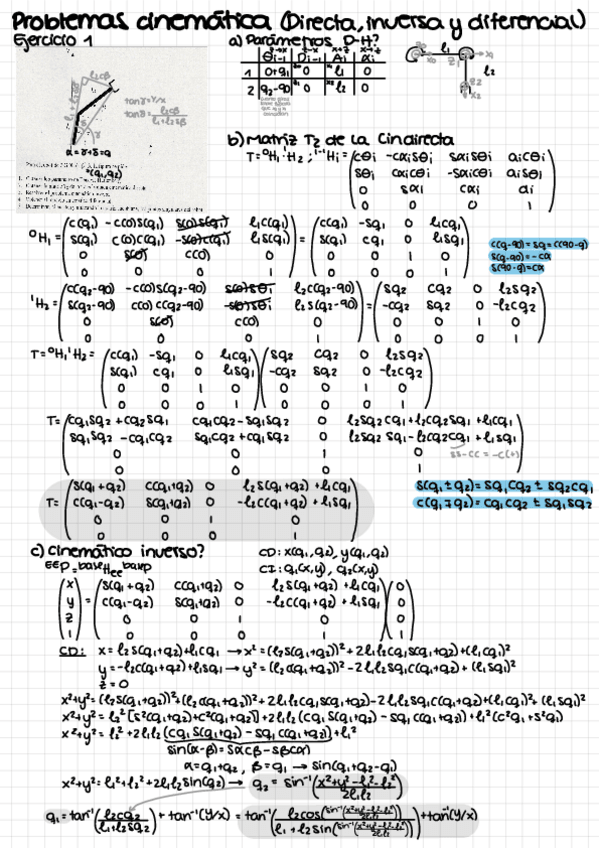 Problemas cinemática (Directa, inversa y diferencial)
Ejercicio 1
a) Parámetros D-H?
θi-1 Di-1 Ai αi
1 0+q1 0 l1 0
2 q2-90 0 l2 0
l1
l2
x0
x1
x2
l2cβ
l1+l2sβ
tanγ=Y/x
tanβ= l2cβ / l1+l2sβ
(q1,q2)
b) Matriz T2 de la Cindirecta
T=⁰H1·¹H2 ; i-1Hi = (cθi -cαisθi sαisθi aicθi
sθi cαicθi -sαicθi aisθi
0 sαi cαi di
0 0 0 1)
⁰H1 = (c(q1) -c(0)s(q1) s(0)s(q1) l1c(q1) = (c(q1) -sq1 0 l1c(q1)
s(q1) c(0)c(q1) -s(0)c(q1) l1s(q1) s(q1) cq1 0 l1sq1
0 s(0) c(0) 0 0 0 1 0
0 0 0 1) 0 0 0 1)
c(q-90)=sq=c(90-q)
s(q-90)=-cq
s(90-q)=cq
¹H2 = (c(q2-90) -c(0)s(q2-90) l2c(q2-90) = (sq2 cq2 0 l2sq2
s(q2-90) c(0)c(q2-90) l2s(q2-90) -cq2 sq2 0 -l2cq2
0 s(0) c(0) 0 0 0 1 0
0 0 0 1) 0 0 0 1)
T=⁰H1¹H2 = (c(q1) -sq1 0 l1c(q1) (sq2 cq2 0 l2sq2
s(q1) cq1 0 l1sq1 -cq2 sq2 0 -l2cq2
0 0 1 0 0 0 1 0
0 0 0 1) 0 0 0 1)
T= (cq1sq2+cq2sq1 cq1cq2-sq1sq2 0 l2sq2cq1+l2cq2sq1+l1cq1
sq1sq2-cq1cq2 sq1cq2+cq1sq2 0 l2sq2sq1-l2cq2cq1+l1sq1)
0 0 1 0
0 0 0 1
ss-cc=-c(+)
T= (s(q1+q2) c(q1+q2) 0 l2s(q1+q2)+l1cq1
c(q1-q2) s(q1+q2) 0 -l2c(q1+q2)+l1sq1
0 0 1 0
0 0 0 1)
s(q1±q2)=sq1cq2±sq2cq1
c(q1∓q2)=cq1cq2±sq1sq2
c) Cinemático inverso?
CD: x(q1,q2), y(q1,q2)
CI: q1(x,y), q2(x,y)
(x = (s(q1+q2) c(q1+q2) 0 l2s(q1+q2)+l1cq1 (0
y c(q1-q2) s(q1+q2) 0 -l2c(q1+q2)+l1sq1 0
z 0 0 1 0 0
1) 0 0 0 1) 1)
CD: x=l2s(q1+q2)+l1cq1 → x²=(l2s(q1+q2))²+2l1l2cq1s(q1+q2)+(l1cq1)²
y=-l2c(q1+q2)+l1sq1 → y²=(l2c(q1+q2))²-2l1l2sq1c(q1+q2)+(l1sq1)²
z=0
x²+y²=(l2s(q1+q2))²+(l2c(q1+q2))²+2l1l2cq1s(q1+q2)-2l1l2sq1c(q1+q2)+(l1cq1)²+(l1sq1)²
x²+y²=l2²[s²(q1+q2)+c²(q1+q2)]+2l1l2(cq1s(q1+q2)-sq1c(q1+q2))+l1²(c²q1+s²q1)
x²+y²=l2²+2l1l2(cq1s(q1+q2)-sq1c(q1+q2))+l1²
sin(α-β)=sαcβ-sβcα
α=q1+q2, β=q1 → sin(q1+q2-q1)
x²+y²=l1²+l2²+2l1l2sin(q2) → q2=sin⁻¹(x²+y²-l1²-l2² / 2l1l2)
q1=tan⁻¹(l2cq2 / l1+l2sq2)+tan⁻¹(Y/x)=tan⁻¹(l2cos(sin⁻¹(x²+y²-l1²-l2² / 2l1l2)) / l1+l2sin(sin⁻¹(x²+y²-l1²-l2² / 2l1l2)))+tan⁻¹(Y/x)